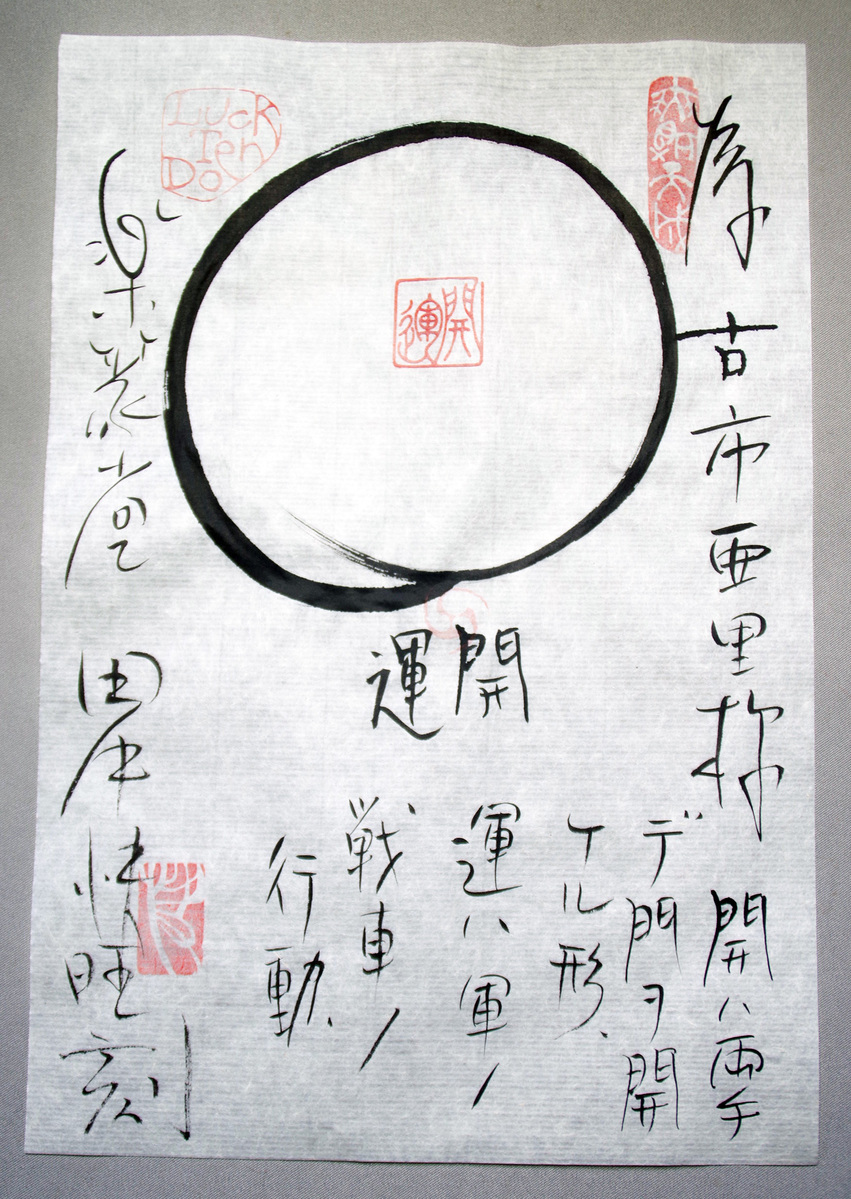 為 古市亜里称
開ハ両手
デ門ヲ開
ケル形、
開運
運ハ軍ノ
戦車ノ
行動、
開運
Luck
Ten
Do
楽篆堂 田中快旺刻